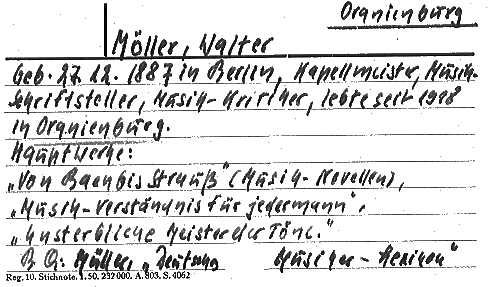 Oranienburg
Möller, Walter
Geb. 27. 12. 1887 in Berlin, Kapellmeister, Musik-
schriftsteller, Musik-Kritiker, lebte seit 1918
in Oranienburg.
Hauptwerke:
„Von Bach bis Strauß" (Musik-Novellen),
„Musik-Verständnis für jedermann",
„Unsterbliche Meister der Töne."
Müller, „Deutsches Musiker-Lexikon"
Reg. 10. Stichnote. 1. 50. 232000. A. 803. S. 4062